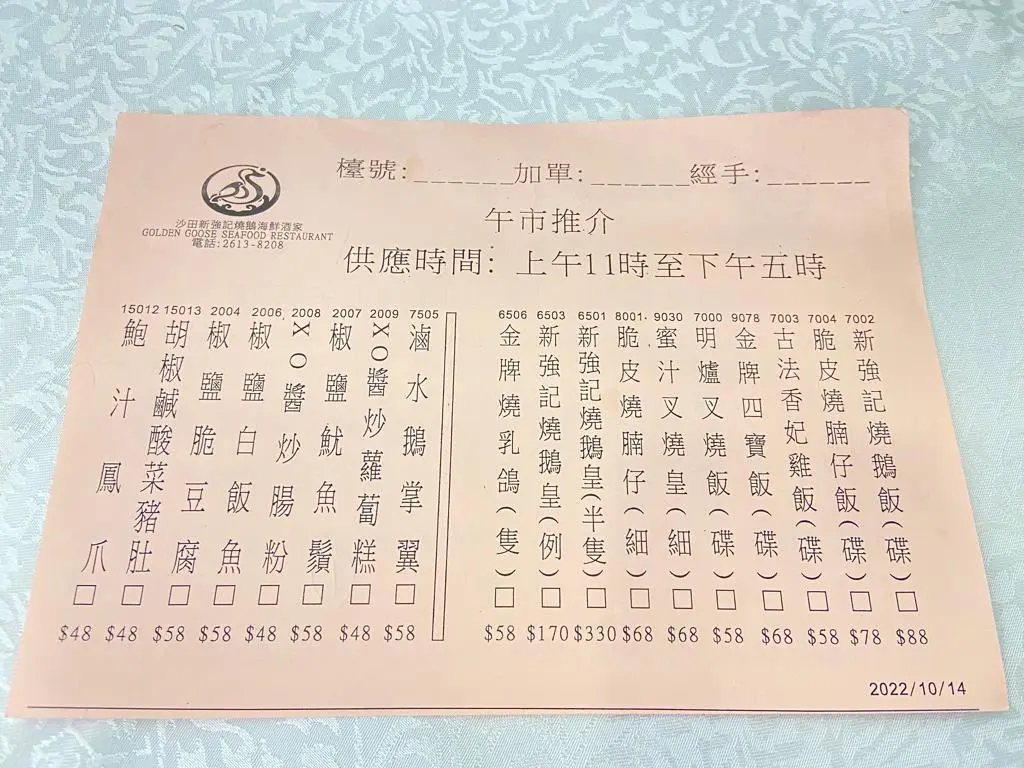 檯號:______加單:______經手:______
沙田新強記燒鵝海鮮酒家
GOLDEN GOOSE SEAFOOD RESTAURANT
電話:2613-8208
午市推介
供應時間: 上午11時至下午五時
7002 新強記燒鵝飯(碟) □ $88
7004 脆皮燒腩仔飯(碟) □ $78
7003 古法香妃雞飯(碟) □ $58
9078 金牌四寶飯(碟) □ $68
7000 明爐叉燒飯(碟) □ $58
9030 蜜汁叉燒皇(細) □ $68
8001 脆皮燒腩仔(細) □ $68
6501 新強記燒鵝皇(半隻) □ $330
6503 新強記燒鵝皇(例) □ $170
6506 金牌燒乳鴿(隻) □ $58
7505 滷水鵝掌翼 □ $58
2009 XO醬炒蘿蔔糕 □ $48
2007 椒鹽魷魚鬚 □ $58
2008 XO醬炒腸粉 □ $48
2006 椒鹽白飯魚 □ $58
2004 椒鹽脆豆腐 □ $58
15013 胡椒鹹酸菜豬肚 □ $48
15012 鮑汁鳳爪 □ $48
2022/10/14